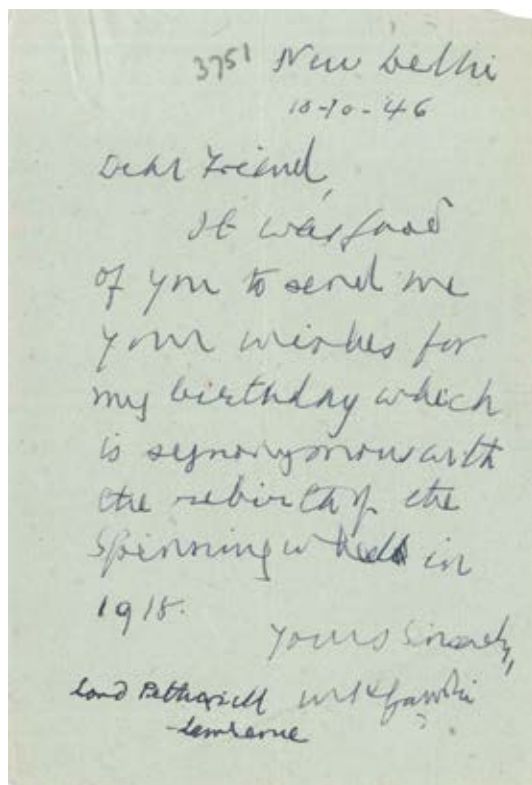 3751 New Delhi
10-10-46
Dear Friend,
It was good
of you to send me
your wishes for
my birthday which
is synonymous with
the rebirth of the
Spinning wheel in
1918.
Yours Sincerely,
Lord Pethwick MKGandhi
-Lawrence